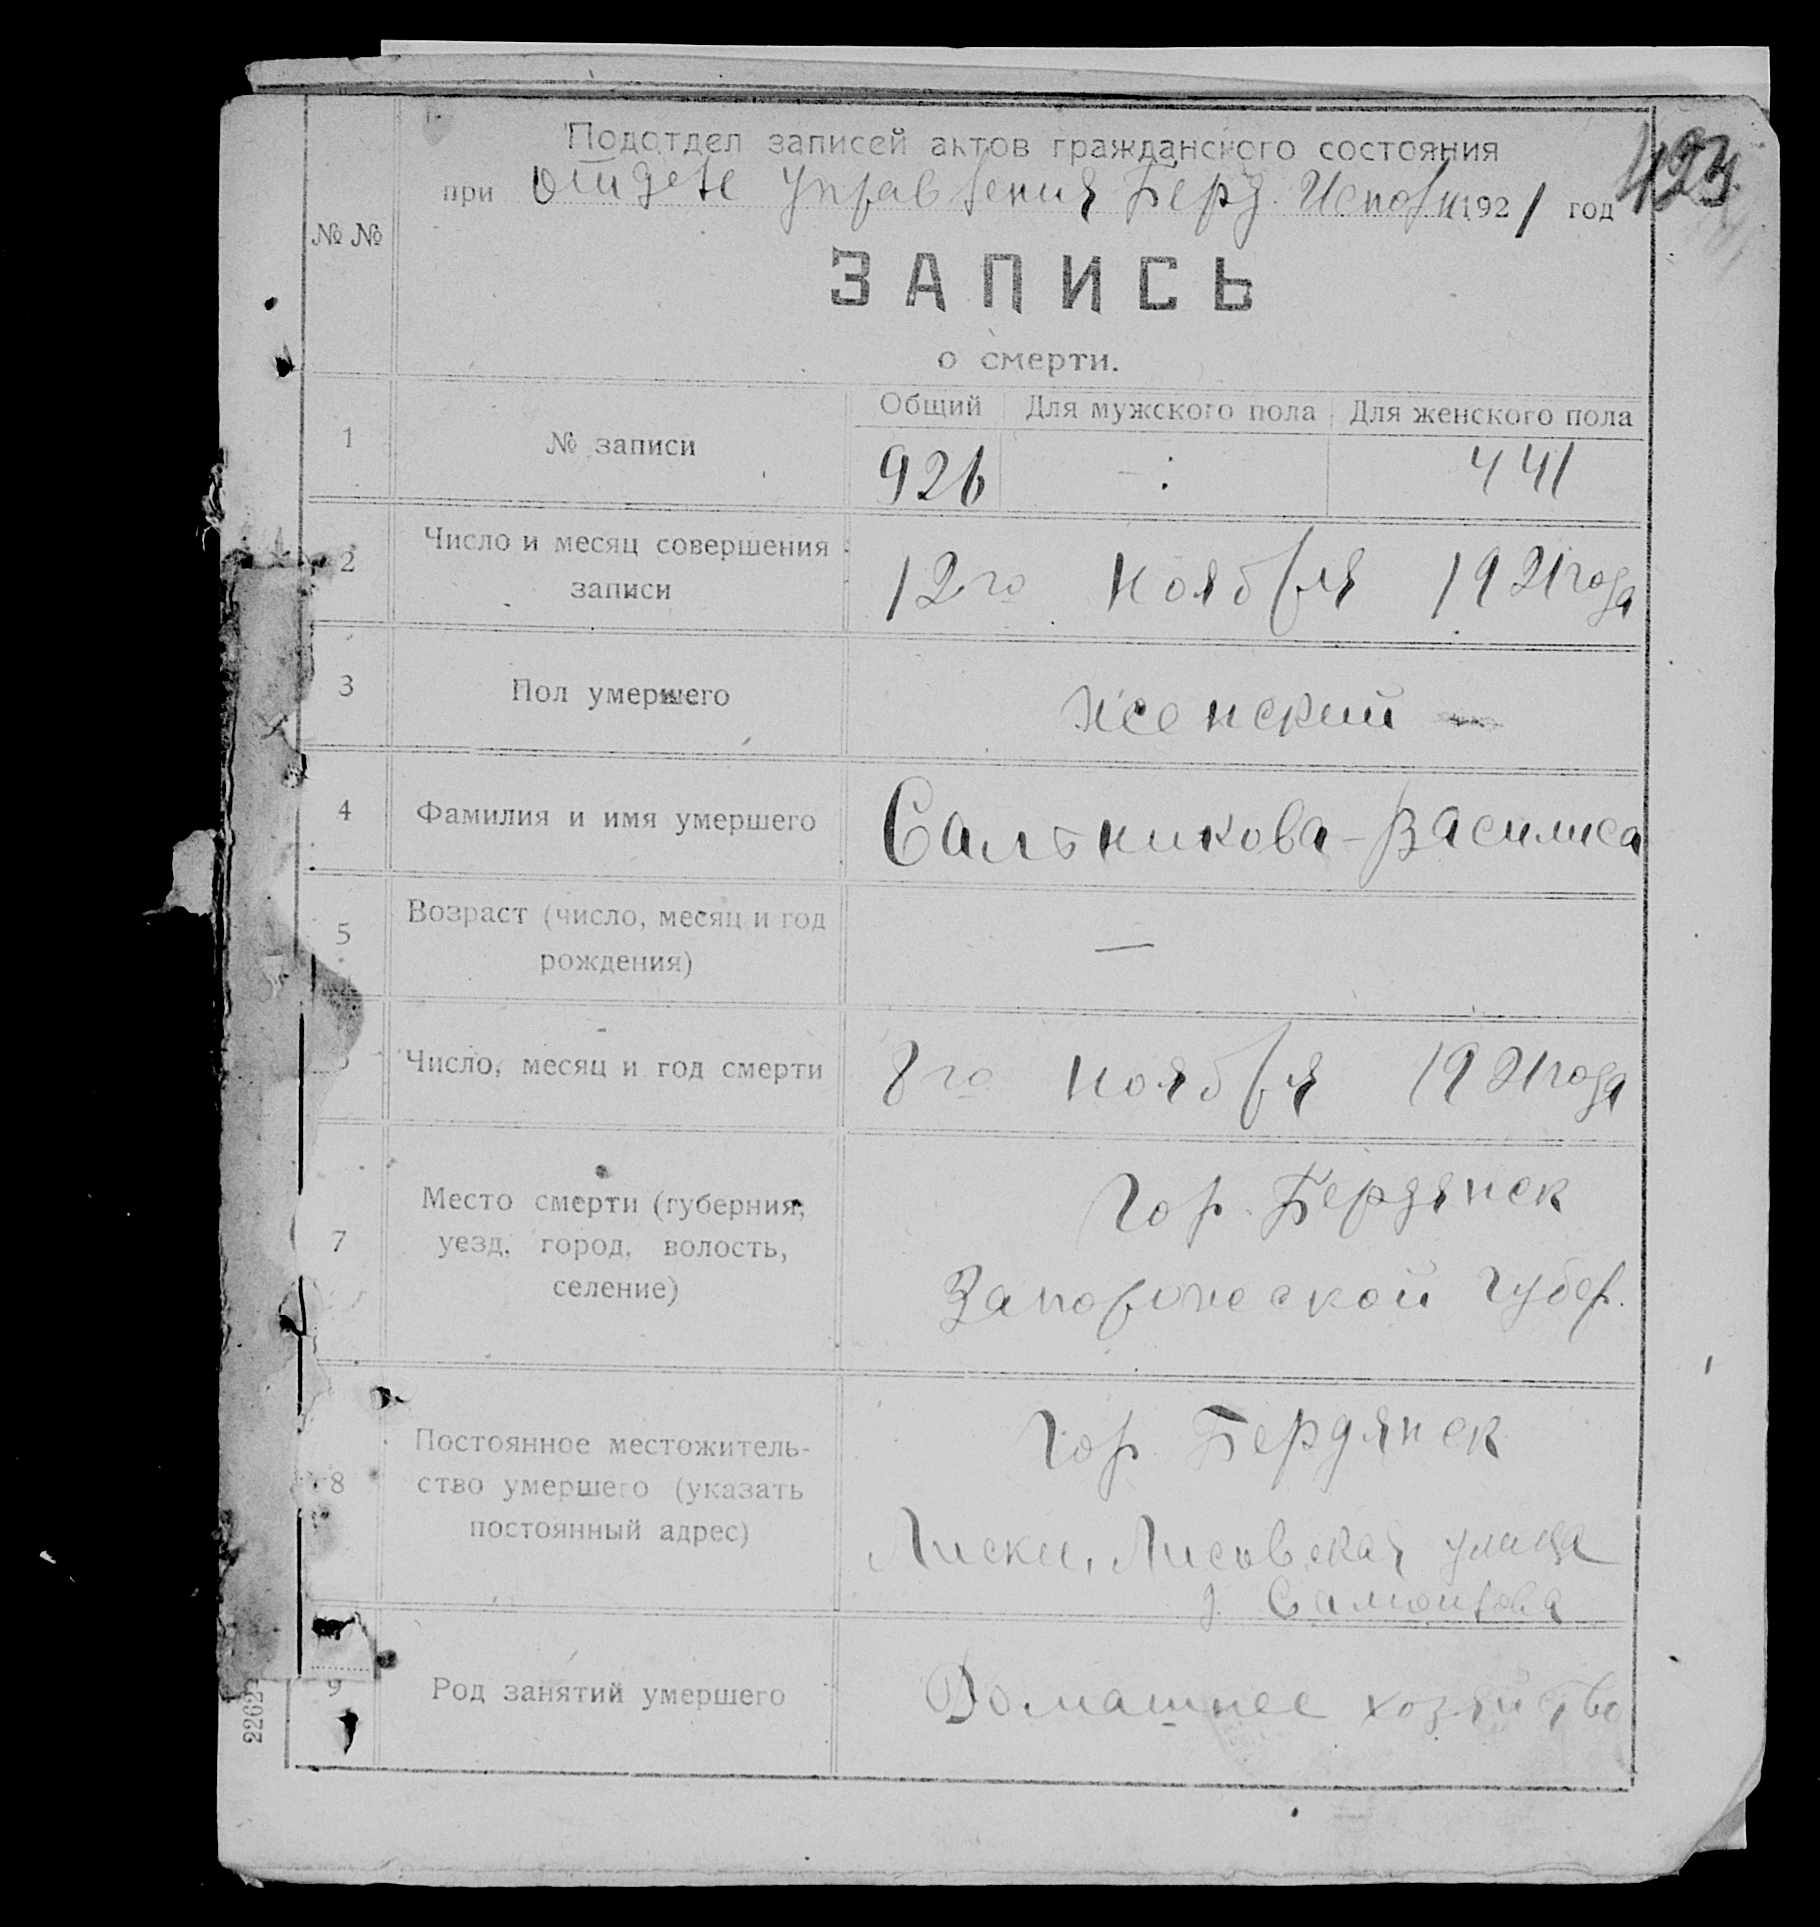 423
Подотдел записей актов гражданского состояния
при отделе управления Берд. Исполк 1921 год
№ №
ЗАПИСЬ
о смерти.
Общий Для мужского пола Для женского пола
1 № записи 926 — : 441
2 Число и месяц совершения записи 12го ноября 1921 года
3 Пол умершего женский —
4 Фамилия и имя умершего Сальникова - Василиса
5 Возраст (число, месяц и год рождения) —
Число, месяц и год смерти 8го ноября 1921 года
7 Место смерти (губерния, уезд, город, волость, селение) Гор. Бердянск
Запорожской губер.
8 Постоянное местожитель-
ство умершего (указать
постоянный адрес)
Гор. Бердянск
Лиски, Лисовская улица
9 Род занятий умершего Домашнее хозяйство
2262